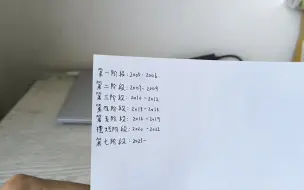 第一阶段：2005-2006
第二阶段：2007-2009
第三阶段：2010-2012
第四阶段：2013-2015
第五阶段：2016-2019
第六阶段：2020-2022
第七阶段：2023-